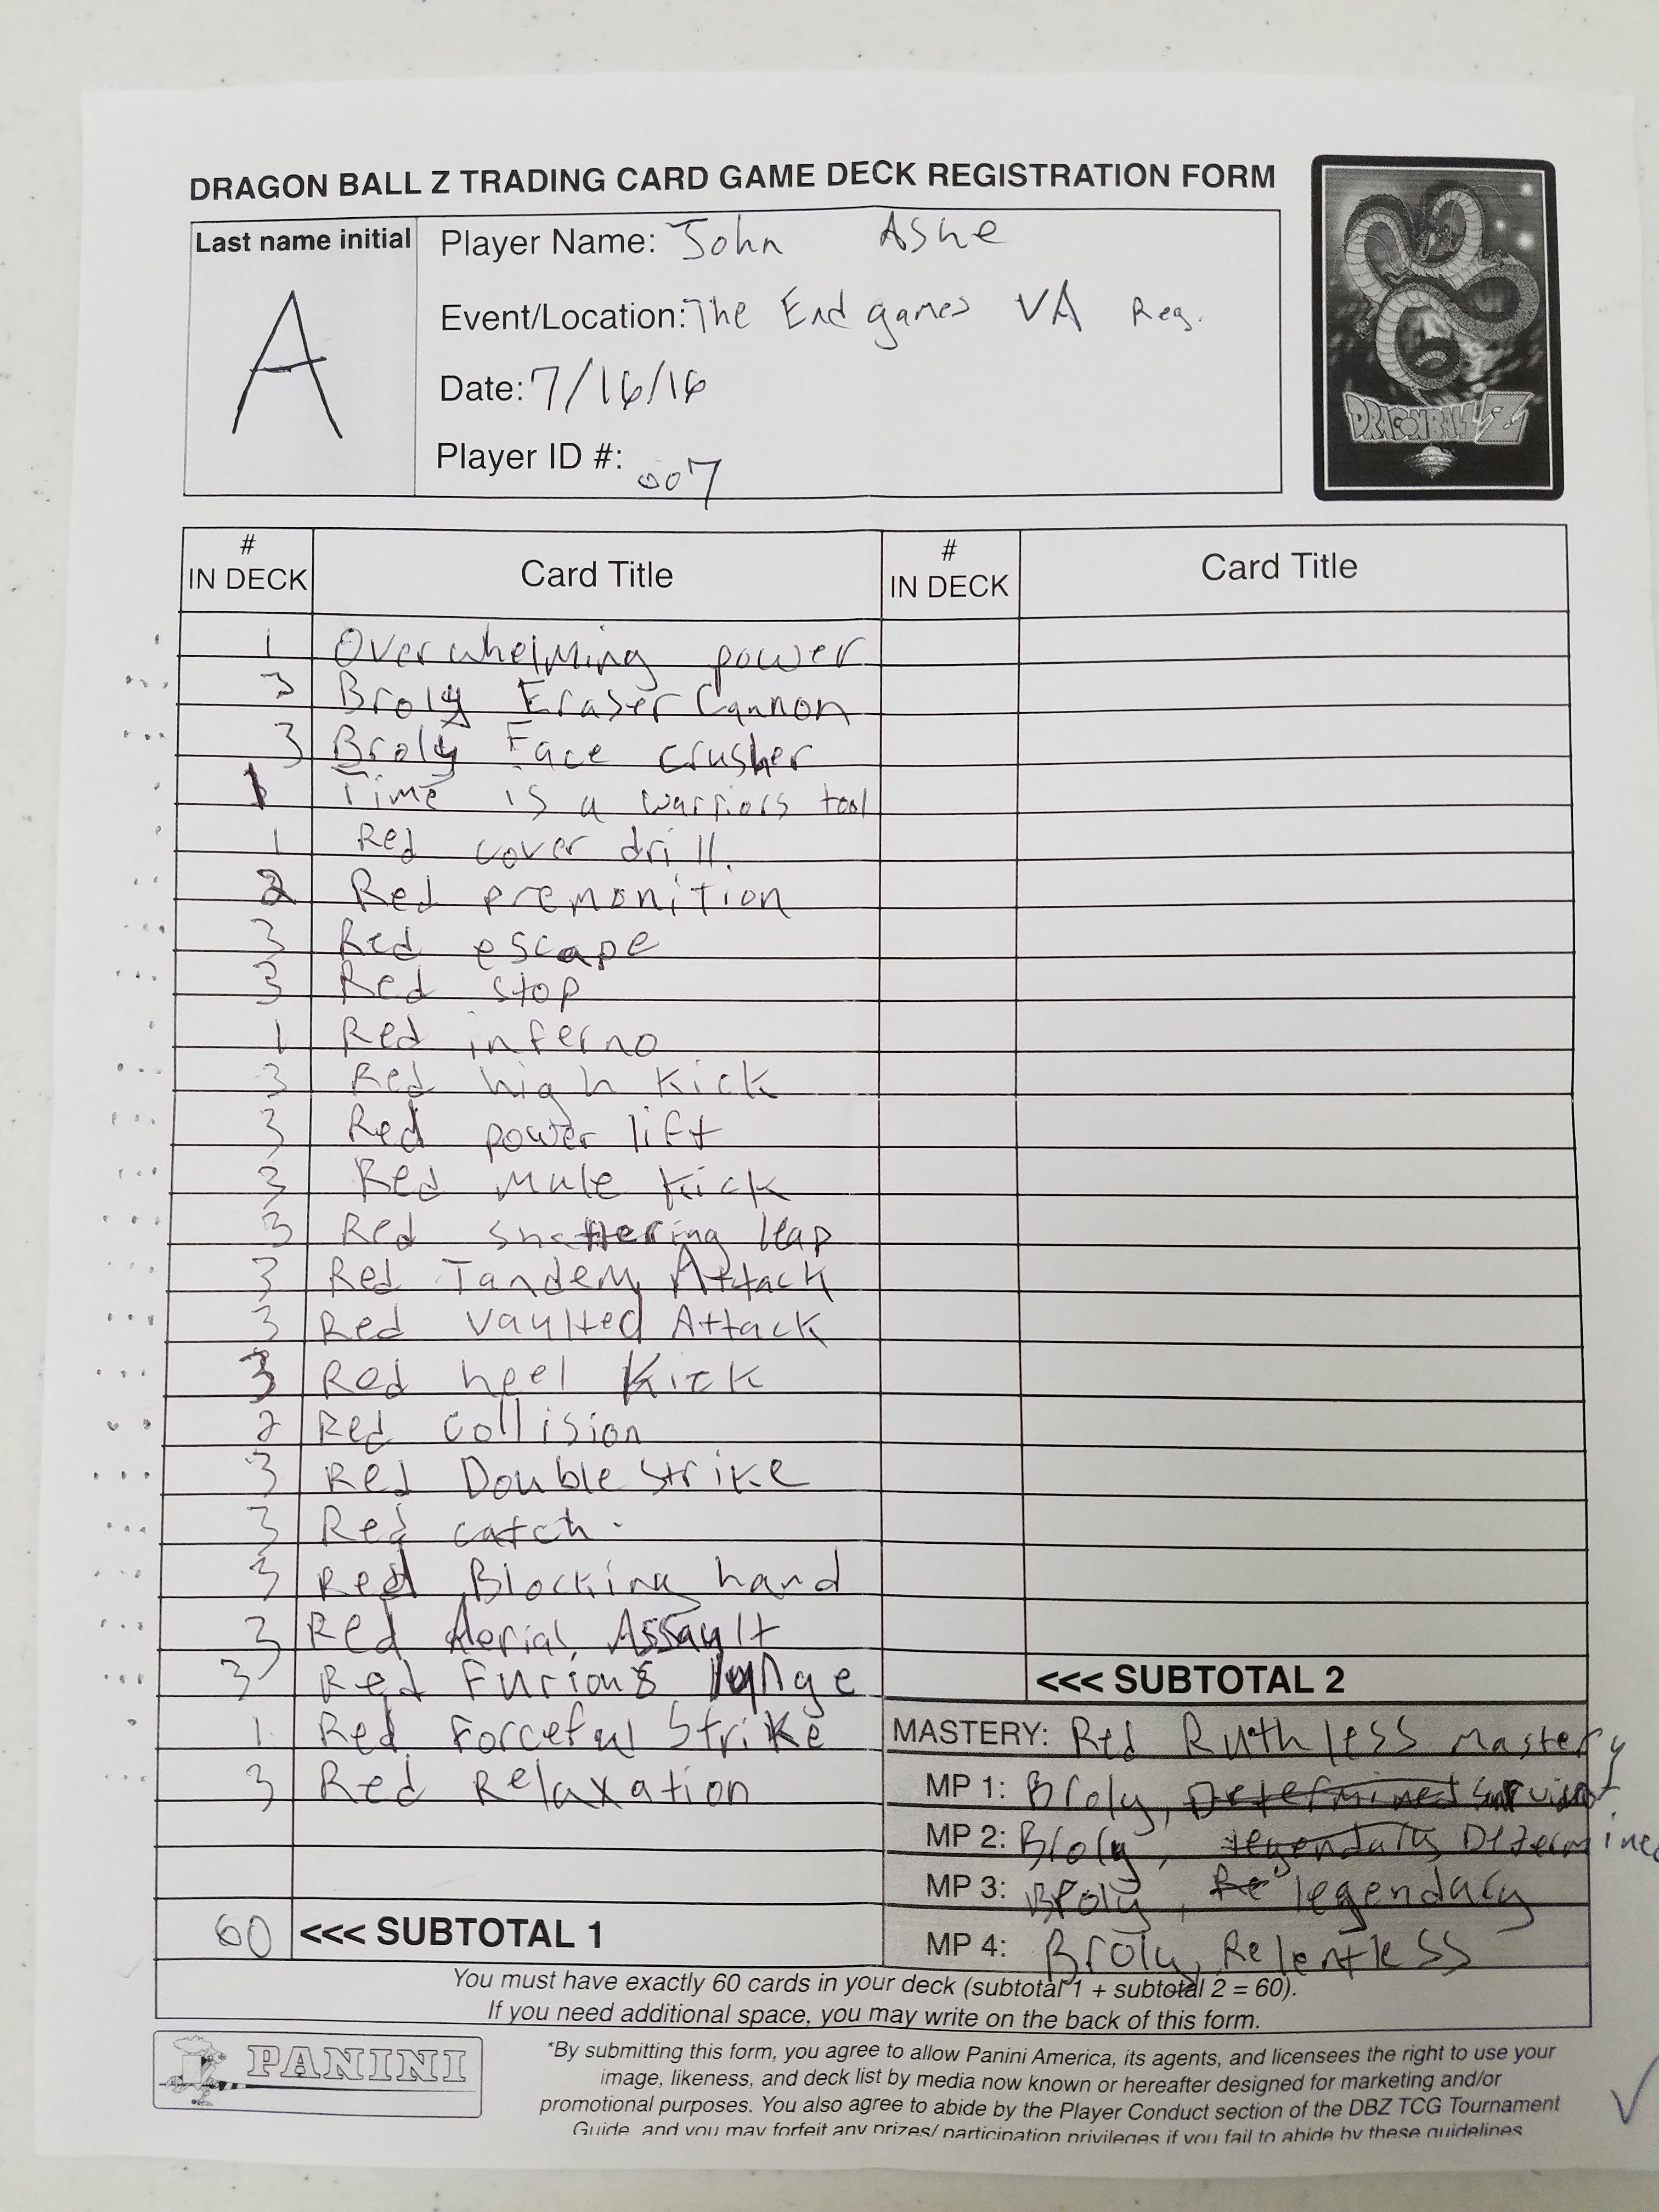 DRAGON BALL Z TRADING CARD GAME DECK REGISTRATION FORM
Last name initial
A
Player Name: John Ashe
Event/Location: The End games VA Reg.
Date: 7/16/16
Player ID #: 007
DRAGONBALL Z
# IN DECK Card Title # IN DECK Card Title
1 Overwhelming power
3 Broly Eraser Cannon
3 Broly Face crusher
1 Time is a warriors tool
1 Red cover drill.
2 Red premonition
3 Red escape
3 Red stop
1 Red inferno
3 Red high kick
3 Red power lift
3 Red Mule kick
3 Red shattering leap
3 Red Tandem Attack
3 Red Vaulted Attack
3 Red heel Kick
2 Red Collision
3 Red Double strike
3 Red catch.
3 Red Blocking hand
3 Red Aerial Assault
3 Red Furious lunge
1 Red Forceful Strike
3 Red Relaxation
60 <<< SUBTOTAL 1
<<< SUBTOTAL 2
MASTERY: Red Ruthless Mastery
MP 1: Broly, Determined Survivor
MP 2: Broly, legendary Determined
MP 3: Broly, Re legendary
MP 4: Broly, Relentless
You must have exactly 60 cards in your deck (subtotal 1 + subtotal 2 = 60).
If you need additional space, you may write on the back of this form.
PANINI
*By submitting this form, you agree to allow Panini America, its agents, and licensees the right to use your
image, likeness, and deck list by media now known or hereafter designed for marketing and/or
promotional purposes. You also agree to abide by the Player Conduct section of the DBZ TCG Tournament
Guide, and you may forfeit any prizes/ participation privileges if you fail to abide by these guidelines